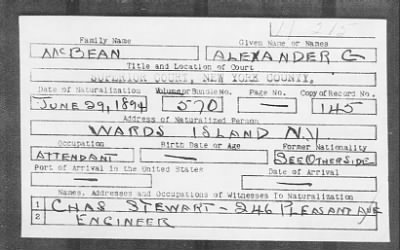 Family Name Given Name or Names
McBEAN ALEXANDER G
Title and Location of Court
SUPERIOR COURT, NEW YORK COUNTY.
Date of Naturalization Volume or Bundle No. Page No. Copy of Record No.
JUNE 29, 1894 570 — 145
Address of Naturalized Person
WARDS ISLAND N.Y
Occupation Birth Date or Age Former Nationality
ATTENDANT — SEE OTHERSIDE
Port of Arrival in the United States Date of Arrival
— —
Names, Addresses and Occupations of Witnesses To Naturalization
1 CHAS STEWART - 246 PLEASANT AVE
2 ENGINEER